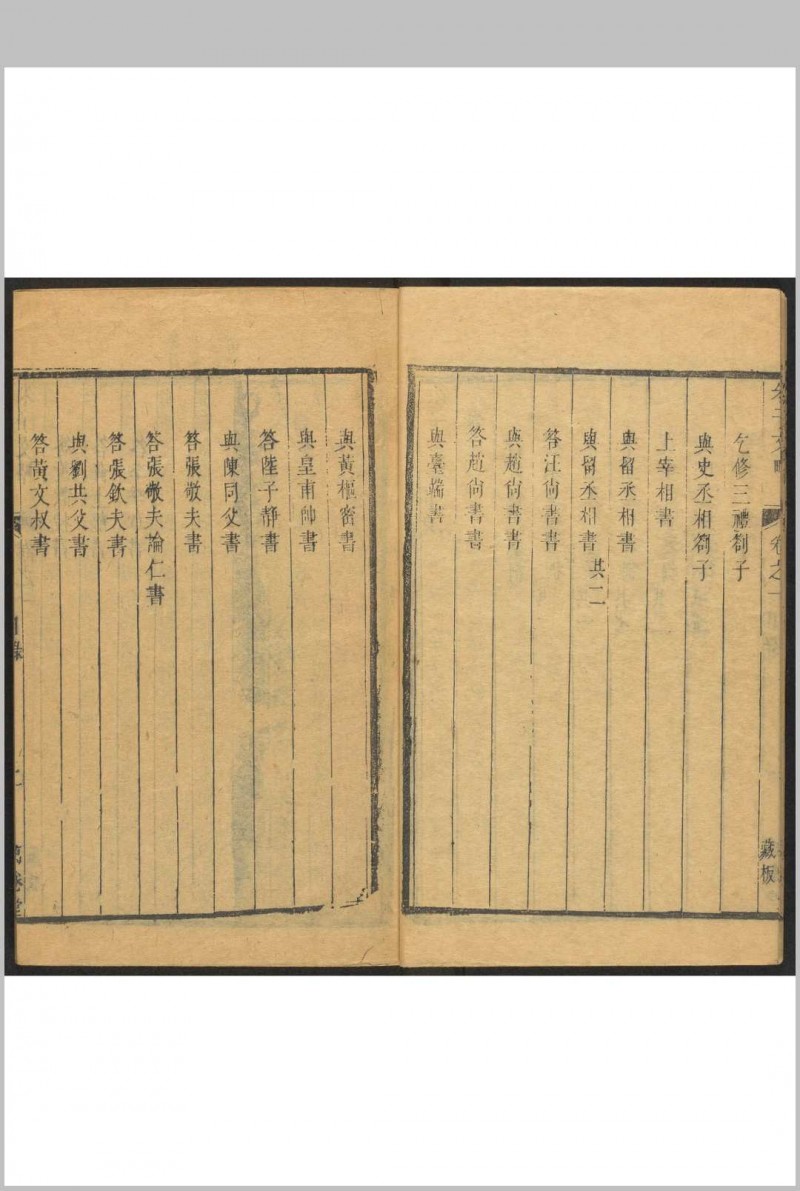 乞修三禮劄子
與史丞相劄子
上宰相書
與留丞相書
與留丞相書 其二
答汪尙書書
與趙尙書書
答趙尙書書
與臺端書
與黃樞密書
與皇甫帥書
答陸子靜書
與陳同父書
答張敬夫書
答張敬夫論仁書
答張欽夫書
與劉共父書
答黃文叔書
卷之一
藏板